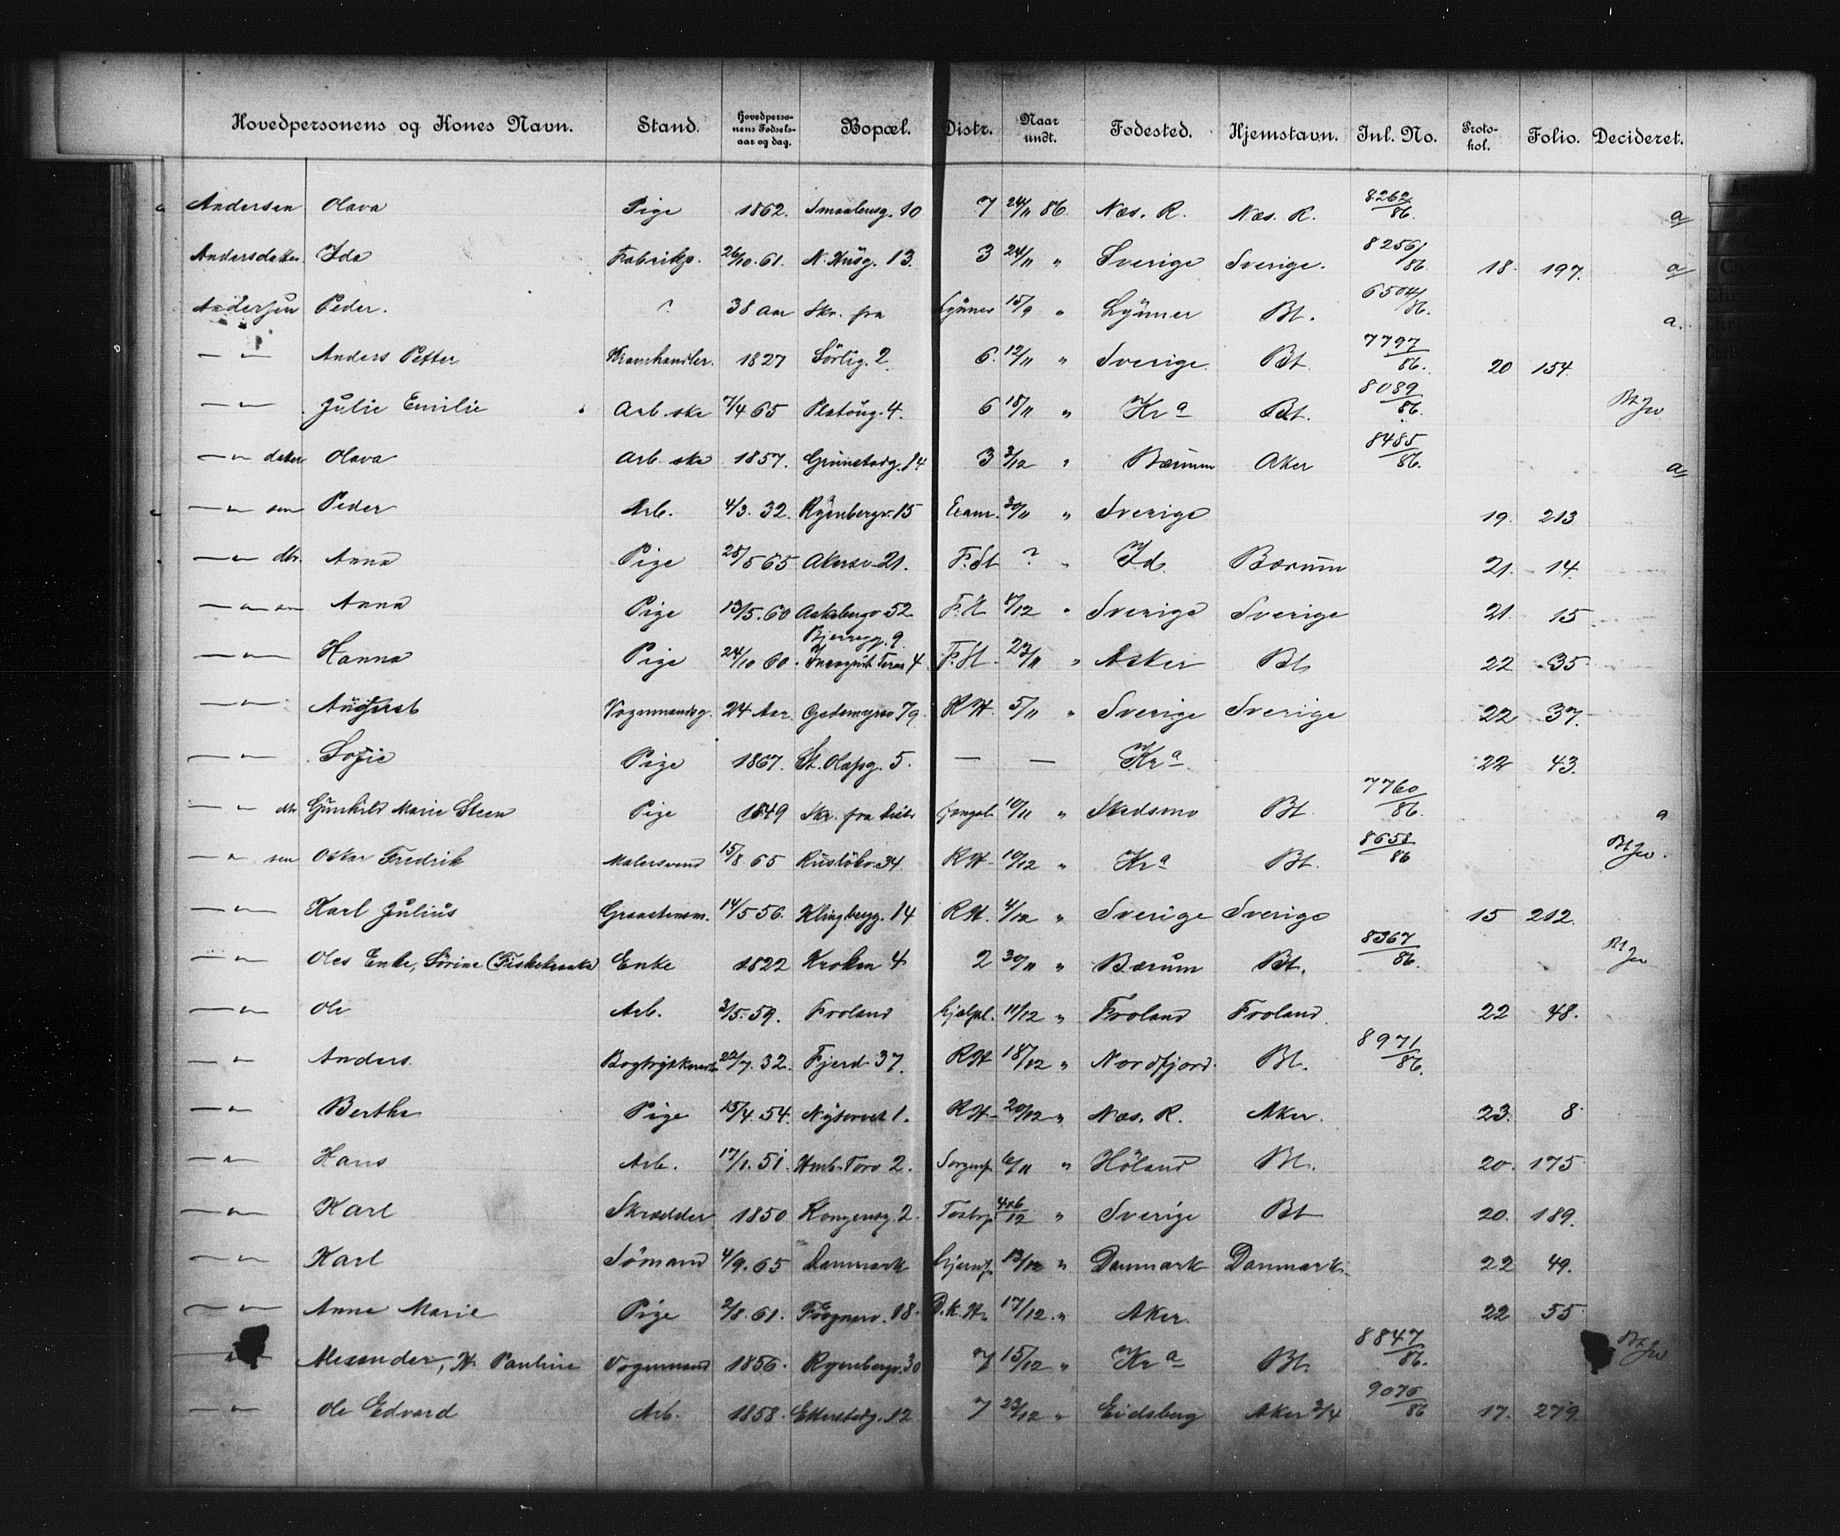 Hovedpersonens og Kones Navn. Stand. Hovedperso-nens Fødsels-aar og dag. Bopæl. Distr. Naar undt. Fødested. Hjemstavn. Inl. No. Proto-kol. Folio. Decideret.
Andersen Olava Pige 1862. Smaalensg. 10 7 24/11 86. Næs. R. Næs. R. 8262/86. a
Andersdatter. Ida Fabrikp. 26/10. 61. N. Husg. 13. 3 24/11 " Sverige Sverige. 8256/86. 18. 197. a
Andersen Peder. ? 38 Aar Skr. fra Lynner 15/9 " Lynner Bt. 6504/86. a.
— " — Anders Petter Kramhandler. 1827 Sörlig. 2 6. 12/11 " Sverige. Bt. 7797/86. 20 154.
— " — Julie Emilie Arb. ske 7/4 65 Platöug. 4. 6 18/11 " Kra Bt. 8089/86.
— " datter Olava Arb. ske 1857. Grünersg. 14 3 3/12 " Bærum Aker 8485/86. a
— " — sen Peder Arb. 4/3. 32. Ryenbergv. 15 30/11 " Sverige 19. 213
— " — dtr. Anna Pige 25/5 65 Akersv. 21. F. St ? " Id. Bærum 21. 14.
— " — " Anna Pige 13/5. 60 52 F. St 4/12 " Sverige Sverige 21. 15
Bjerregg. 9
— " — Hanna Pige 24/10 60. Teras 4 F. St. 23/11 " Asker Bt. 22 35
— " — August Vognmandsg. 24 Aar. 79. R. H. 5/11 " Sverige Sverige 22 37.
— " — Sofie Pige 1867. St. Olafsg. 5. — — Kra 22 43.
— " dtr Gunhild Marie Steen Pige 1849 Skr. fra 10/11 " Skedsmo Bt. 7760/86. a
— " sen Oskar Fredrik Malersvend 15/8 65 Rusløkv. 34 R. H. 10/12 " Kra Bt. 8658/86
— " — Karl Julius Graastensm. 14/5 56. Klingbergg. 14 R. H. 4/12 " Sverige Sverige 15 212.
— " — Oles Enke, Sörine (Fiskekaaka) Enke 1822 Kroken 4 2 30/11 " Bærum Bt. 8367/86.
— " — Ole Arb. 3/5. 59. Froland 11/12 " Froland Froland 22 48.
— " Anders. 22/7. 32. Fjerd. 37. R. H 18/12 " Nordfjord. Bt. 8971/86.
— " Berthe Pige 15/4. 54. Nytorvet 1. R. H. 20/12 " Næs. R. Aker. 23. 8
— " — Hans Arb. 17/1. 51. Torv 2. 6/11 " Höland Bt. 20. 175
— " — Karl Skrædder 1850 Kongensg. 2. 4 x 6/12 " Sverige Bt 20. 189.
— " — Karl Sömand 4/9. 65 Danmark 13/12 " Danmark Danmark. 22 49.
— " — Anne Marie Pige 2/8. 61. Frognerv. 18. D. K. H. 17/12. " Aker. 22 55
— " — Alexander, H. Pauline Vognmand 1856. Ryenbergv. 30 7 15/12 " Kra Bt. 8847/86.
— " — Ole Edvard Arb. 1858. Ekerstedg. 12 7 23/12 " Eidsberg Aker 3/4 9076/86 17. 279.